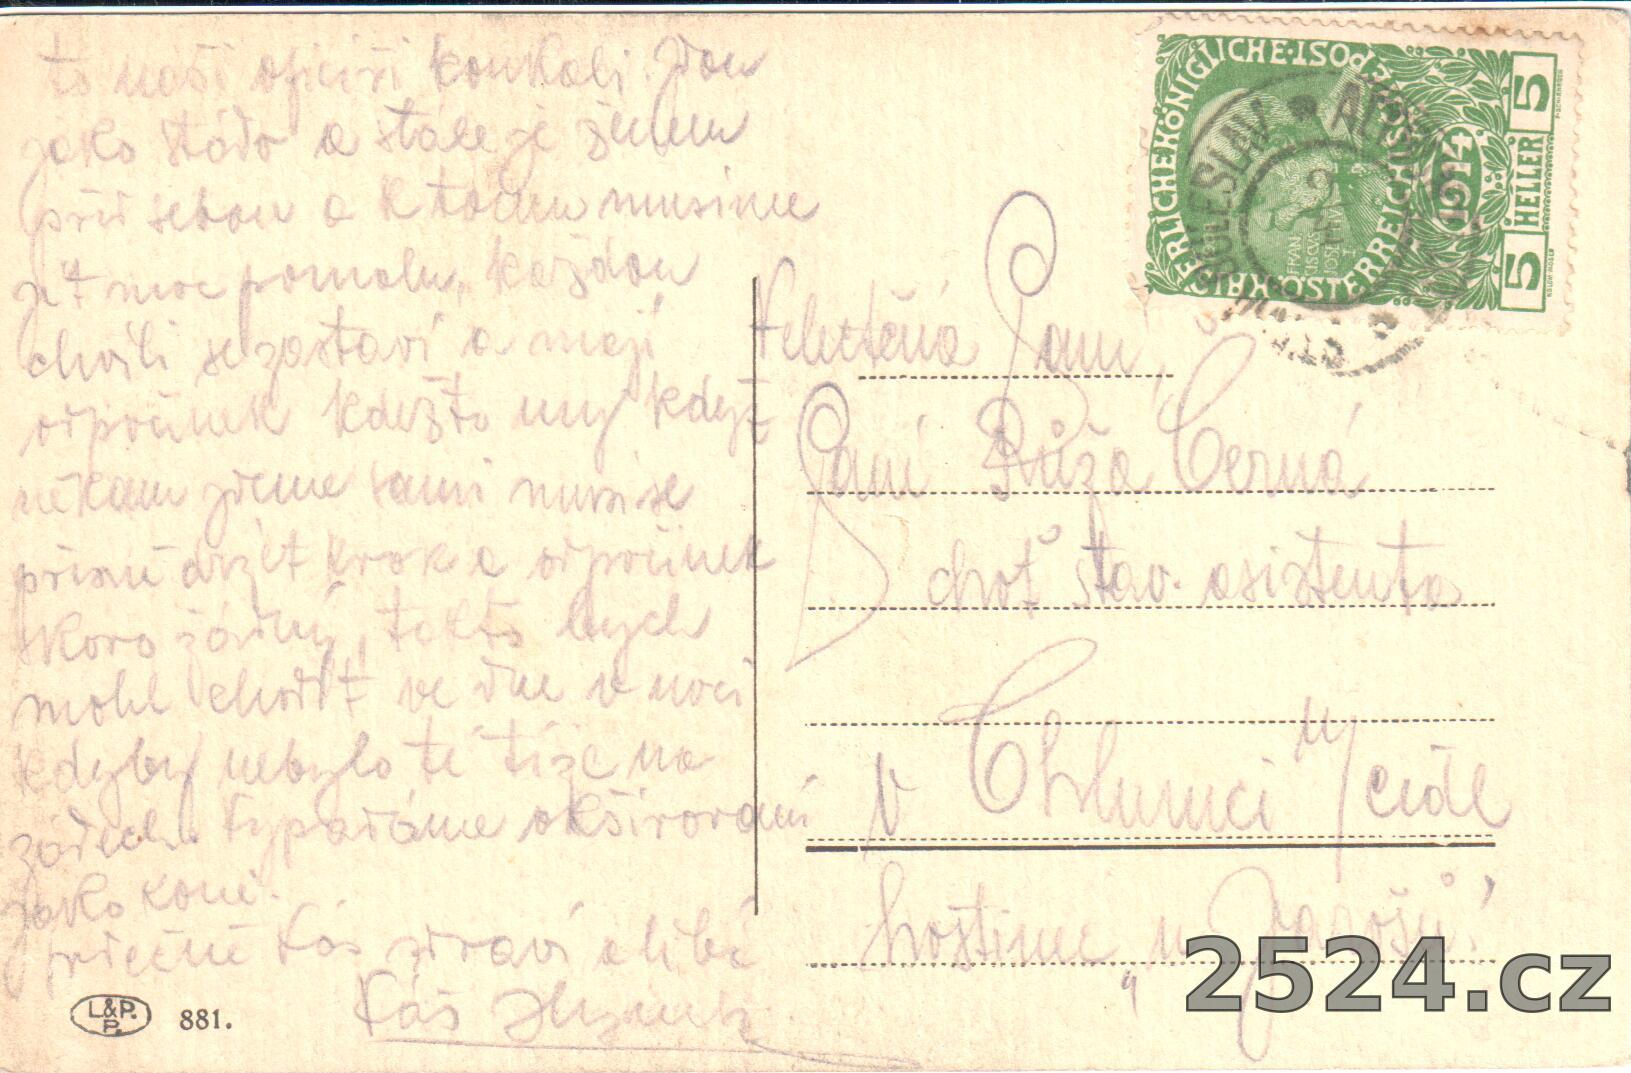 to naši oficíři koukali. Jdou
jako stádo a stále je ženem
před sebou a k tomu musíme
jít moc pomalu, každou
chvíli se zastaví a mají
odpočinek kdežto my když
někam jdeme sami musí se
přísně držet krok a odpočinek
skoro žádný, takto bych
mohl chodit ve dne v noci
kdyby nebylo té tíže na
zádech. Vypadáme okšírovaní
jako koně.
srdečně Vás zdraví a líbá
Váš Hynek
L.&P.
P.
881.
KAISERLICHEKÖNIGLICHE·ÖSTERREICHISCHE POST
FRAN
CISCVS
IOSEPHVS
I
1914
5 HELLER 5
BOLESLAV
Velectěná Paní,
Paní Růža Černá
choť stav. asistenta
v Chlumci n/Cidl
hostinec "u Jarošů"
2524.cz